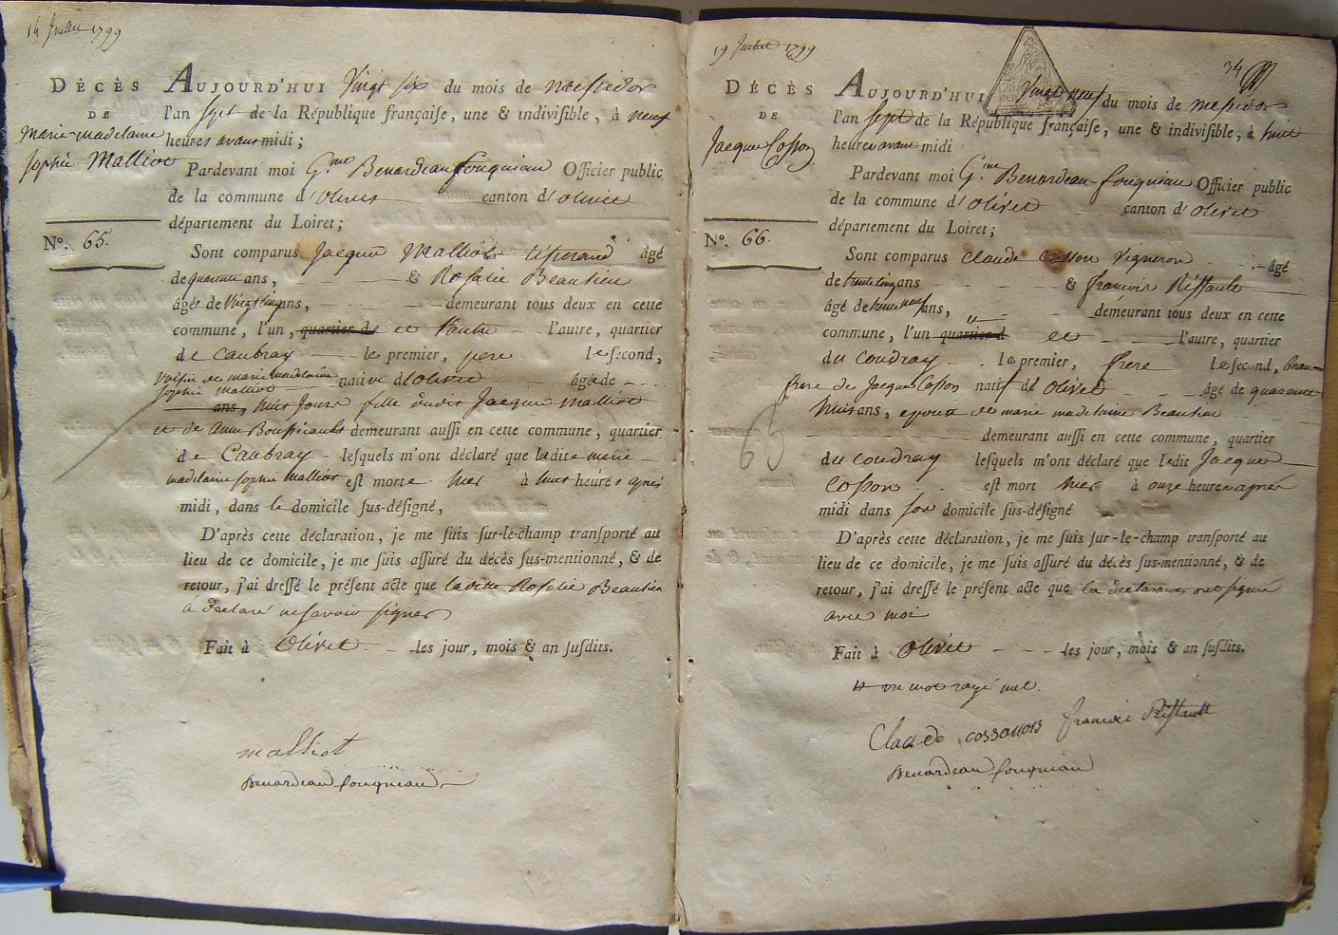 14 Juillet 1799
DÉCÈS
DE
Marie Madelaine
Sophie Malliot
N°. 65.
AUJOURD'HUI Vingt six du mois de messidor
l'an sept de la République françaiſe, une & indiviſible, à neuf
heures avant midi;
Pardevant moi G.me Benardeau fouqueau Officier public
de la commune d'Olivet canton d'olivet
département du Loiret;
Sont comparus Jacque Malliot âgé
de quarante ans, & Rosalie Beaulieu
âgés de Vingt cinq ans, demeurant tous deux en cette
commune, l'un, quartier de et l'autre l'autre, quartier
de Caubray le premier, pere le ſecond,
de marie madelaine
Sophie malliot native d'Olivet âgé de
ans, huit Jours fille dudit Jacque Malliot
et de Anne Boussicault demeurant auſſi en cette commune, quartier
de Caubray leſquels m'ont déclaré que ladite marie
madelaine sophie malliot eſt morte hier à huit heures après
midi, dans le domicile ſus-déſigné,
D'après cette déclaration, je me ſuis ſur-le-champ tranſporté au
lieu de ce domicile, je me ſuis aſſuré du décès ſus-mentionné, & de
retour, j'ai dreſſé le préſent acte que ladite Rosalie Beaulieu
a déclaré ne savoir signer
Fait à Olivet les jour, mois & an ſuſdits.
malliot
Benardeau fouqueau
19 Juillet 1799
34
DÉCÈS
DE
Jacque Cosson
N°. 66.
AUJOURD'HUI Vingt neuf du mois de messidor
l'an sept de la République françaiſe, une & indiviſible, à huit
heures avant midi
Pardevant moi G.me Benardeau fouqueau Officier public
de la commune d'Olivet canton d'olivet
département du Loiret;
Sont comparus Claude Cosson Vigneron âgé
de trente cinq ans & francois Riffault
âgé de trente neuf ans, demeurant tous deux en cette
commune, l'un quartier d et l'autre, quartier
du coudray le premier, frere le ſecond, beau
frere de Jacque Cosson natif d'Olivet âgé de quarante
huit ans, epoux de marie madelaine Beaulieu
demeurant auſſi en cette commune, quartier
65
du coudray leſquels m'ont déclaré que ledit Jacque
Cosson eſt mort hier à onze heures après
midi dans son domicile ſus-déſigné
D'après cette déclaration, je me ſuis ſur-le-champ tranſporté au
lieu de ce domicile, je me ſuis aſſuré du décès ſus-mentionné, & de
retour, j'ai dreſſé le préſent acte que les déclarans ont signé
avec moi
Fait à Olivet les jour, mois & an ſuſdits.
un mot rayé nul.
Claude cosson francois Riffault
Benardeau fouqueau